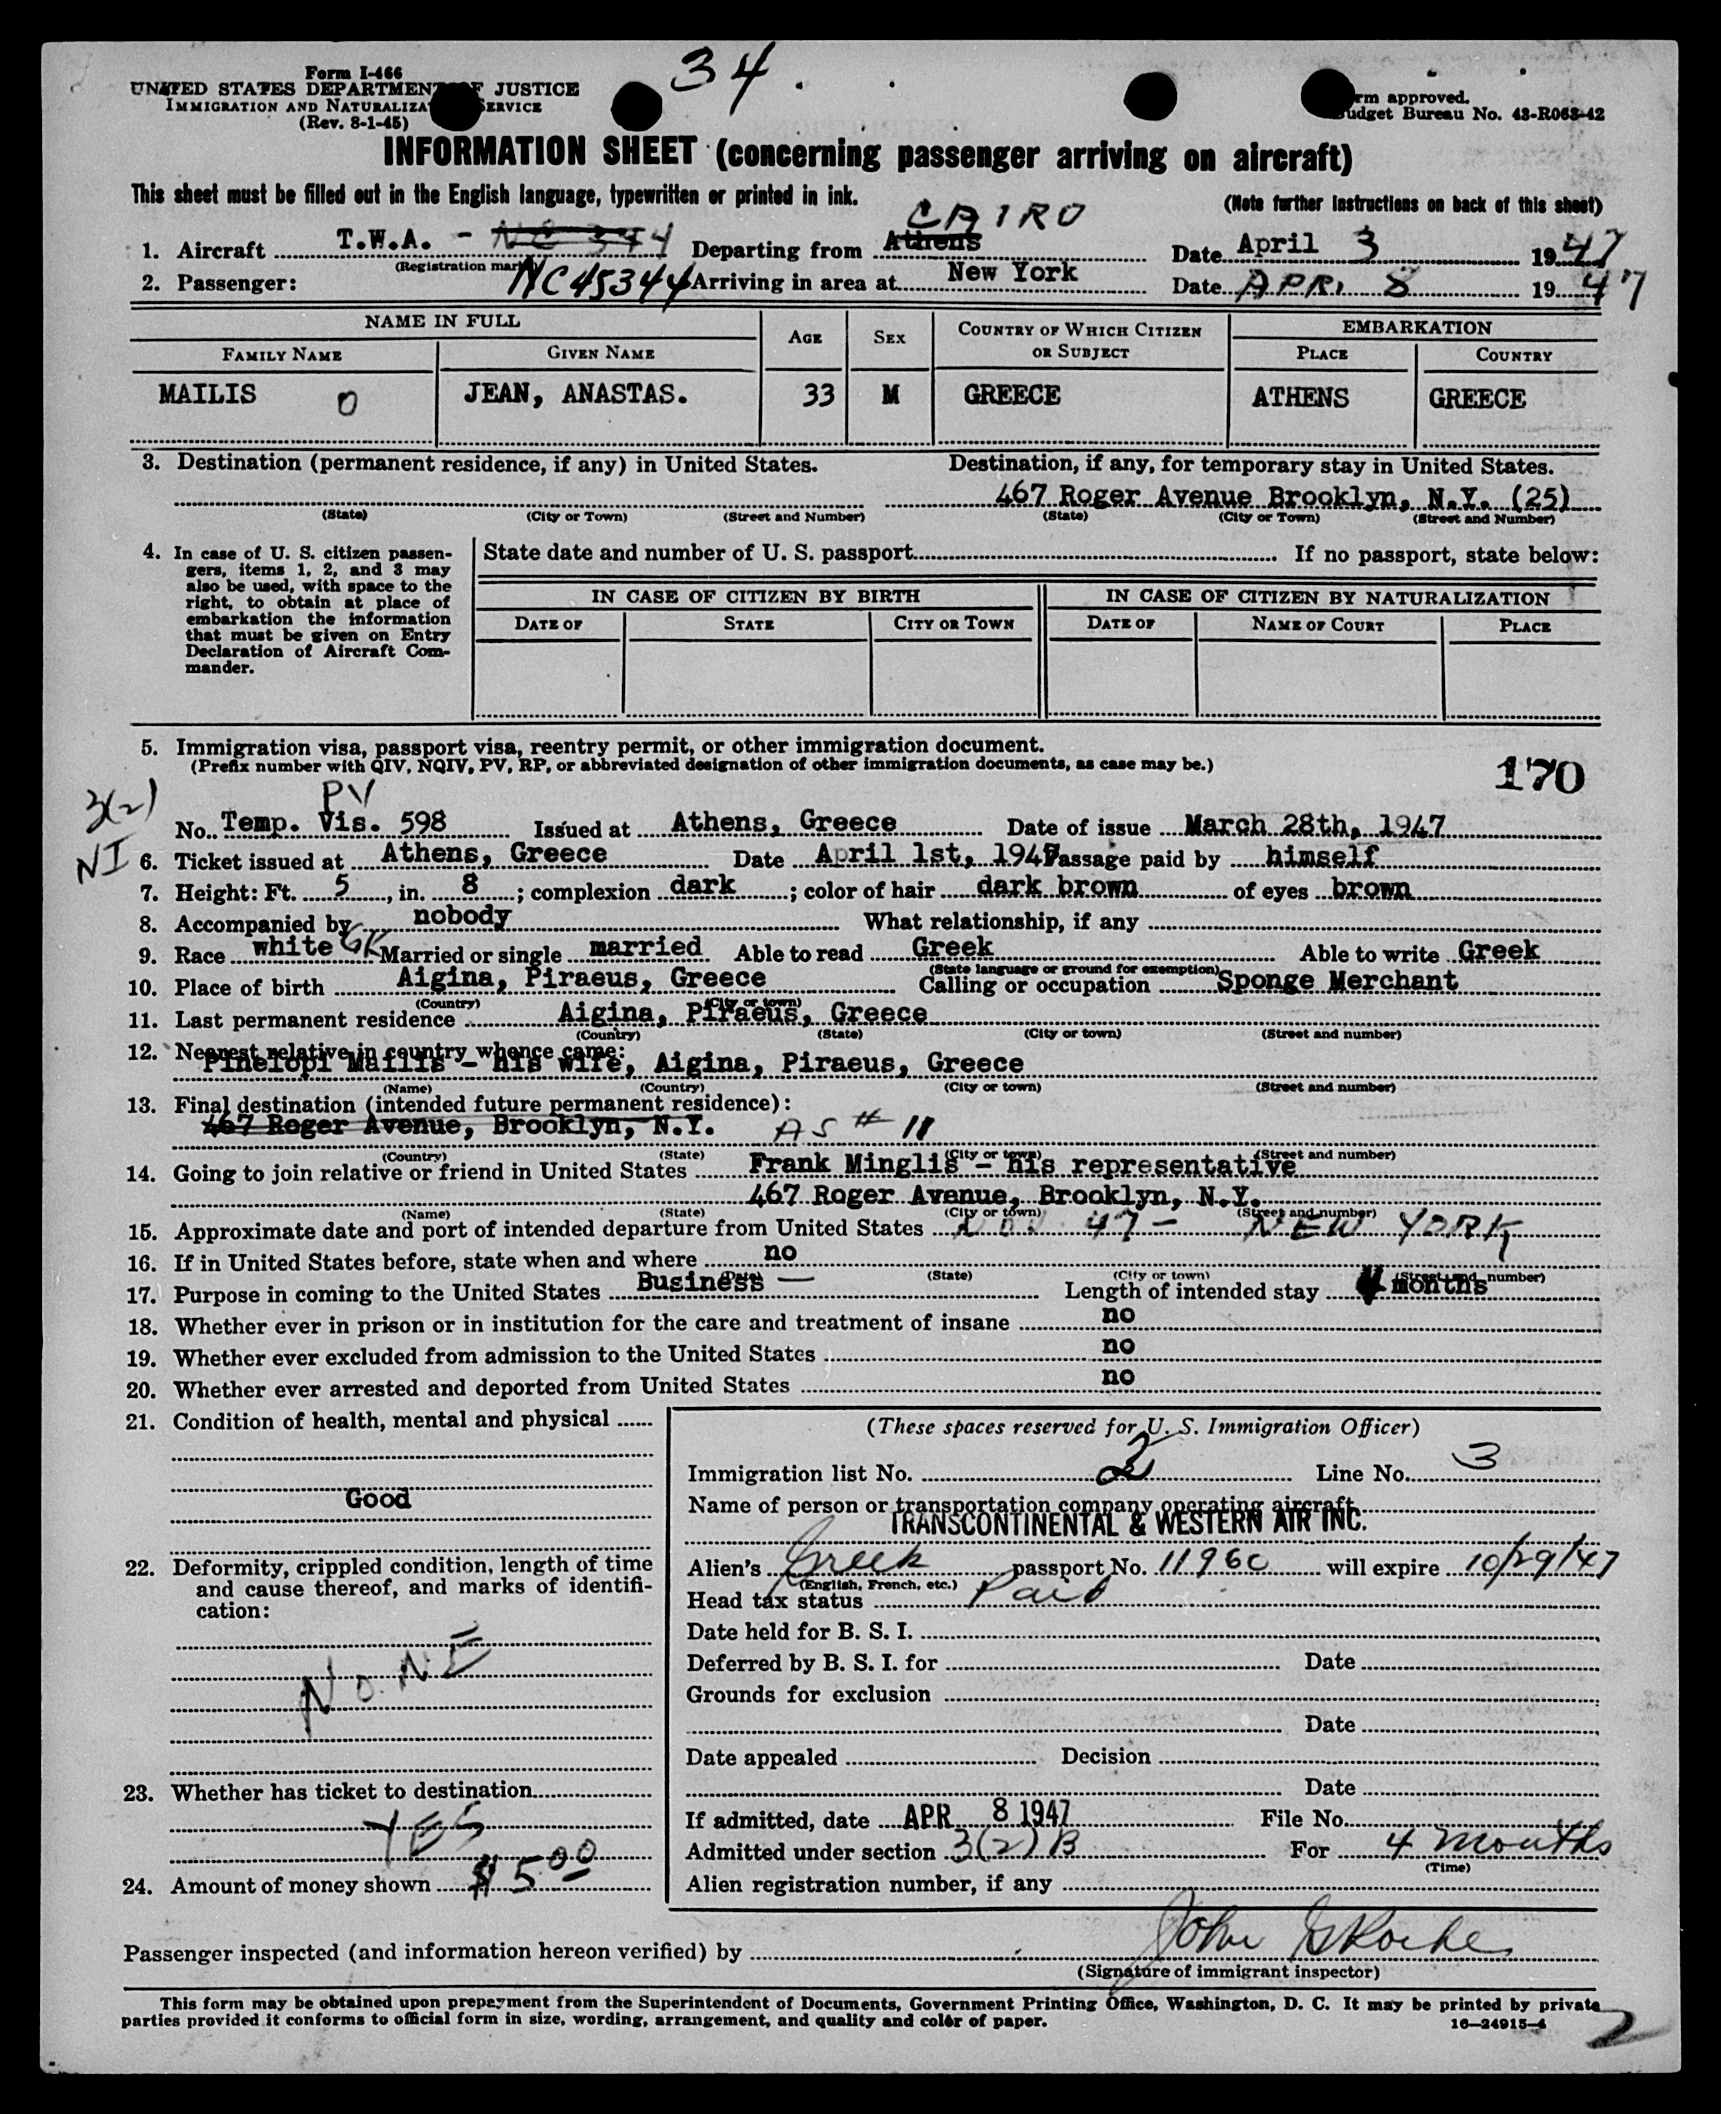 34.
Form I-466
UNITED STATES DEPARTMENT OF JUSTICE
IMMIGRATION AND NATURALIZATION SERVICE
(Rev. 8-1-45)
Form approved.
Budget Bureau No. 43-R063-42
INFORMATION SHEET (concerning passenger arriving on aircraft)
This sheet must be filled out in the English language, typewritten or printed in ink.
(Note further instructions on back of this sheet)
CAIRO
1. Aircraft T.W.A. - NC 344 Departing from Athens Date April 3 1947
(Registration mark)
2. Passenger: NC45344 Arriving in area at New York Date APRI 8 1947
NAME IN FULL AGE SEX COUNTRY OF WHICH CITIZEN OR SUBJECT EMBARKATION
FAMILY NAME GIVEN NAME PLACE COUNTRY
MAILIS O JEAN, ANASTAS. 33 M GREECE ATHENS GREECE
3. Destination (permanent residence, if any) in United States. Destination, if any, for temporary stay in United States.
467 Roger Avenue Brooklyn, N.Y. (25)
(State) (City or Town) (Street and Number) (State) (City or Town) (Street and Number)
4. In case of U. S. citizen passen-
gers, items 1, 2, and 3 may
also be used, with space to the
right, to obtain at place of
embarkation the information
that must be given on Entry
Declaration of Aircraft Com-
mander.
State date and number of U. S. passport If no passport, state below:
IN CASE OF CITIZEN BY BIRTH IN CASE OF CITIZEN BY NATURALIZATION
DATE OF STATE CITY OR TOWN DATE OF NAME OF COURT PLACE
5. Immigration visa, passport visa, reentry permit, or other immigration document.
(Prefix number with QIV, NQIV, PV, RP, or abbreviated designation of other immigration documents, as case may be.)
170
3(2)
NI
PV
No. Temp. Vis. 598 Issued at Athens, Greece Date of issue March 28th, 1947
6. Ticket issued at Athens, Greece Date April 1st, 1947 Passage paid by himself
7. Height: Ft. 5, in. 8; complexion dark; color of hair dark brown of eyes brown
8. Accompanied by nobody What relationship, if any
9. Race white GK Married or single married Able to read Greek Able to write Greek
(State language or ground for exemption)
10. Place of birth Aigina, Piraeus, Greece Calling or occupation Sponge Merchant
(Country) (City or town)
11. Last permanent residence Aigina, Piraeus, Greece
(Country) (State) (City or town) (Street and number)
12. Nearest relative in country whence came:
Pinelopi Mailis - his wife, Aigina, Piraeus, Greece
(Name) (Country) (City or town) (Street and number)
13. Final destination (intended future permanent residence):
467 Roger Avenue, Brooklyn, N.Y. AS # 11
(Country) (State) (City or town) (Street and number)
14. Going to join relative or friend in United States Frank Minglis - his representative
467 Roger Avenue, Brooklyn, N.Y.
(Name) (State) (City or town) (Street and number)
15. Approximate date and port of intended departure from United States 47 - NEW YORK
16. If in United States before, state when and where no
(Date) (State) (City or town) (Street and number)
17. Purpose in coming to the United States Business — Length of intended stay 4 months
18. Whether ever in prison or in institution for the care and treatment of insane no
19. Whether ever excluded from admission to the United States no
20. Whether ever arrested and deported from United States no
21. Condition of health, mental and physical
Good
22. Deformity, crippled condition, length of time
and cause thereof, and marks of identifi-
cation:
NONE
23. Whether has ticket to destination
YES
24. Amount of money shown $ 5.00
(These spaces reserved for U. S. Immigration Officer)
Immigration list No. 2 Line No. 3
Name of person or transportation company operating aircraft
TRANSCONTINENTAL & WESTERN AIR INC.
Alien's Greek passport No. 11960 will expire 10/29/47
(English, French, etc.)
Head tax status Paid
Date held for B. S. I.
Deferred by B. S. I. for Date
Grounds for exclusion
Date
Date appealed Decision
Date
If admitted, date APR 8 1947 File No.
Admitted under section 3(2) B For 4 months
(Time)
Alien registration number, if any
Passenger inspected (and information hereon verified) by John
(Signature of immigrant inspector)
This form may be obtained upon prepayment from the Superintendent of Documents, Government Printing Office, Washington, D. C. It may be printed by private
parties provided it conforms to official form in size, wording, arrangement, and quality and color of paper.
16—24915-4
2